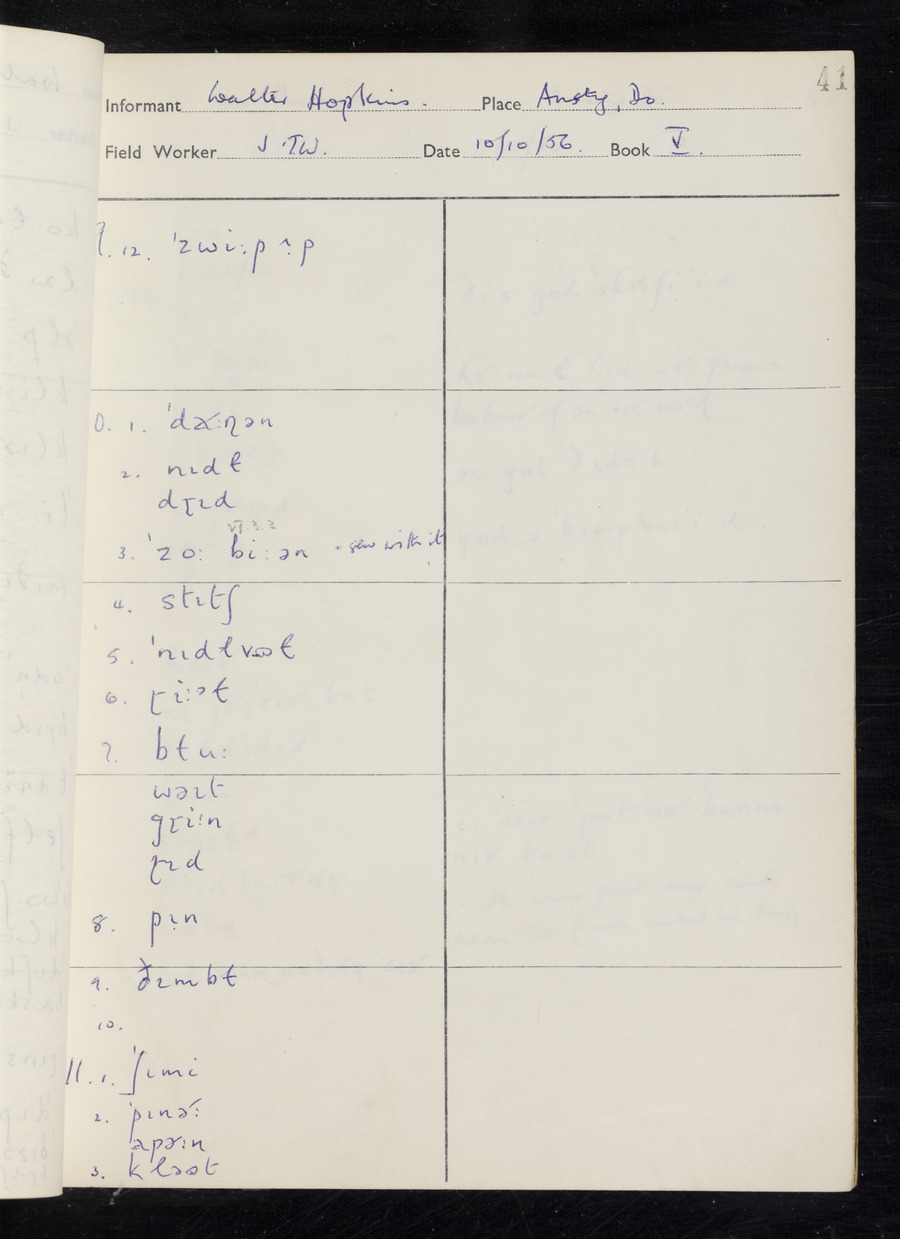 41
Informant Walter Hopkins. Place Ansty, Do.
Field Worker J.TW. Date 10/10/56. Book V.
9. 12. ˈzwiːp ʌp
10. 1. ˈdɚːɳən
2. nɪdɫ
dɽɪd
VI.3.2
3. ˈzoː biːən - sew with it
4. stɪtʃ
5. ˈnɪdɫ
6. ɽiːəɫ
7. bɫuː
wəɪt
gɽiːn
ɽɪd
8. pɪn
9. ðɪmbɫ
10.
11. 1. ˈʃɪmi
2. ˈpɪnɚː
apɚːn
3. k